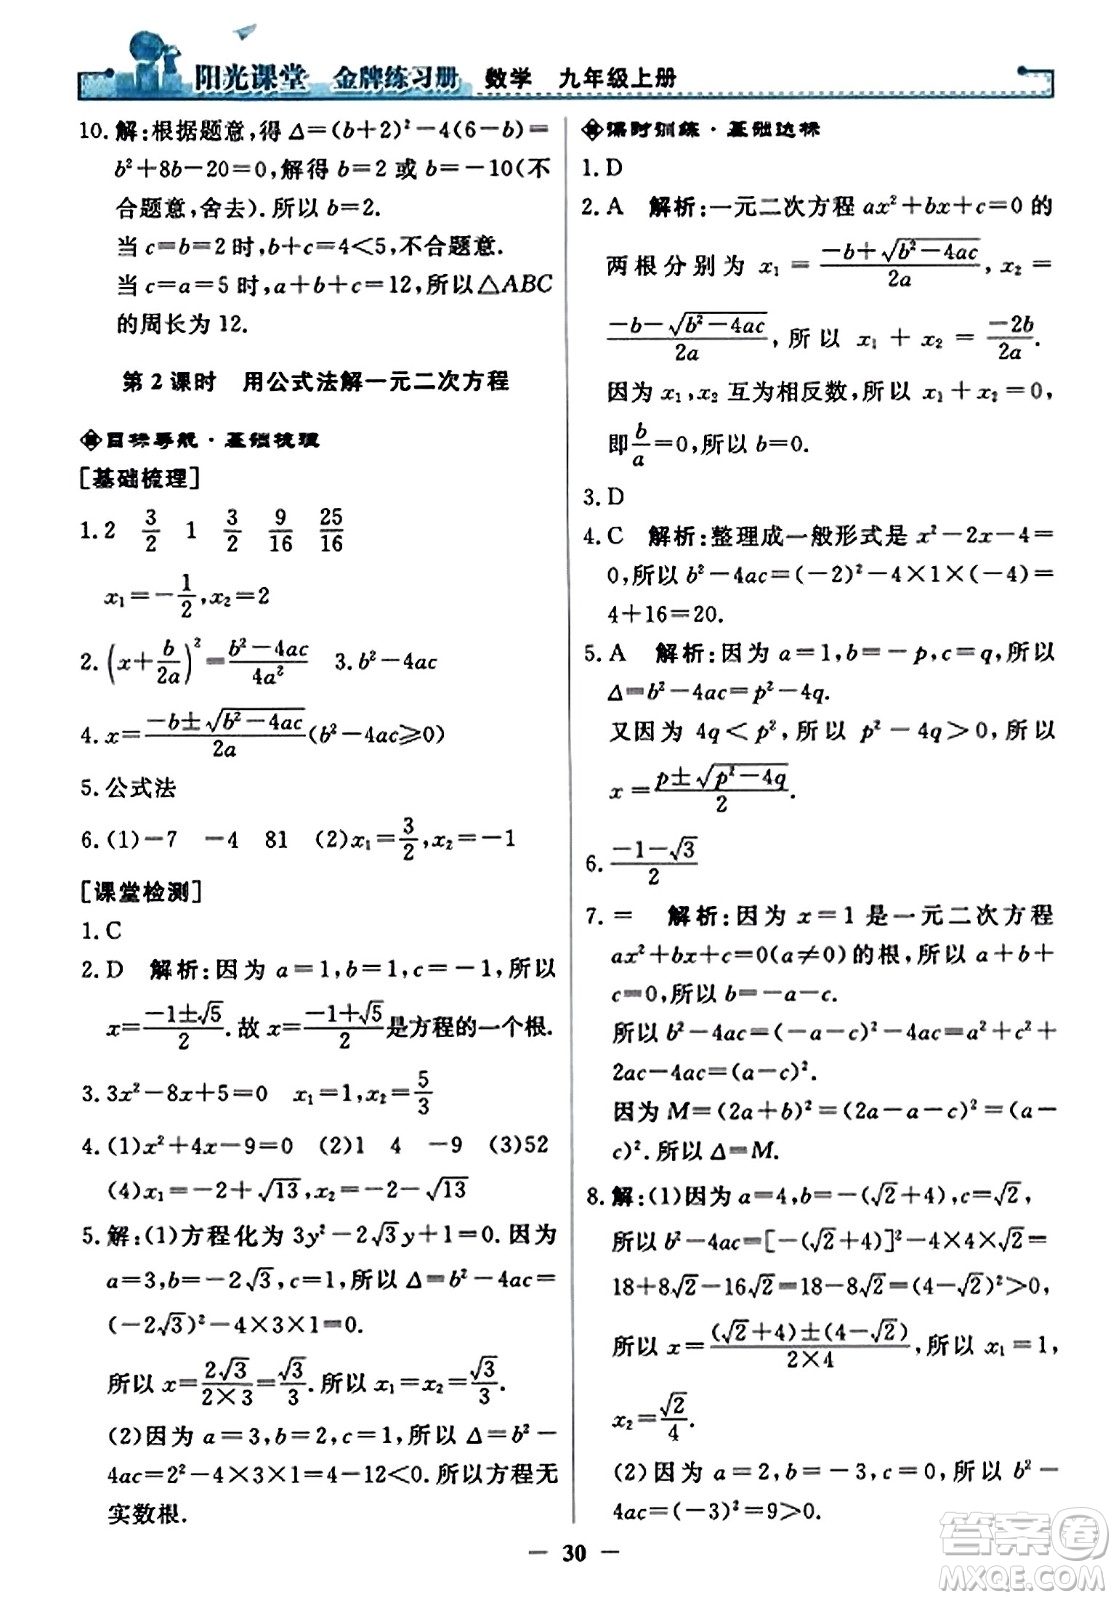 阳光课堂 金牌练习册 数学 九年级上册
10. 解:根据题意,得 Δ=(b+2)²-4(6-b)=
b²+8b-20=0,解得 b=2 或 b=-10(不
合题意,舍去).所以 b=2.
当 c=b=2 时,b+c=4<5,不合题意.
当 c=a=5 时,a+b+c=12,所以△ABC
的周长为 12.
第 2 课时 用公式法解一元二次方程
目标导航·基础梳理
[基础梳理]
1. 2 3/2 1 3/2 9/16 25/16
x₁=-1/2,x₂=2
2. (x+b/2a)²=(b²-4ac)/4a² 3. b²-4ac
4. x=(-b±√(b²-4ac))/2a(b²-4ac⩾0)
5. 公式法
6. (1)-7 -4 81 (2)x₁=3/2,x₂=-1
[课堂检测]
1. C
2. D 解析:因为 a=1,b=1,c=-1,所以
x=(-1±√5)/2.故 x=(-1+√5)/2是方程的一个根.
3. 3x²-8x+5=0 x₁=1,x₂=5/3
4. (1)x²+4x-9=0 (2)1 4 -9 (3)52
(4)x₁=-2+√13,x₂=-2-√13
5. 解:(1)方程化为 3y²-2√3y+1=0. 因为
a=3,b=-2√3,c=1,所以 Δ=b²-4ac=
(-2√3)²-4×3×1=0.
所以 x=2√3/(2×3)=√3/3,所以 x₁=x₂=√3/3.
(2)因为 a=3,b=2,c=1,所以 Δ=b²-
4ac=2²-4×3×1=4-12<0.所以方程无
实数根.
课时训练·基础达标
1. D
2. A 解析:一元二次方程 ax²+bx+c=0 的
两根分别为 x₁=(-b+√(b²-4ac))/2a,x₂=
(-b-√(b²-4ac))/2a,所以 x₁+x₂=-2b/2a.
因为 x₁,x₂ 互为相反数,所以 x₁+x₂=0,
即b/a=0,所以 b=0.
3. D
4. C 解析:整理成一般形式是 x²-2x-4=
0,所以 b²-4ac=(-2)²-4×1×(-4)=
4+16=20.
5. A 解析:因为 a=1,b=-p,c=q,所以
Δ=b²-4ac=p²-4q.
又因为 4q<p²,所以 p²-4q>0,所以
x=(p±√(p²-4q))/2.
6. (-1-√3)/2
7. = 解析:因为 x=1 是一元二次方程
ax²+bx+c=0(a≠0)的根,所以 a+b+
c=0,所以 b=-a-c.
所以 b²-4ac=(-a-c)²-4ac=a²+c²+
2ac-4ac=(a-c)².
因为 M=(2a+b)²=(2a-a-c)²=(a-
c)².所以 Δ=M.
8. 解:(1)因为 a=4,b=-(√2+4),c=√2,
所以 b²-4ac=[-(√2+4)]²-4×4×√2=
18+8√2-16√2=18-8√2=(4-√2)²>0,
所以 x=((√2+4)±(4-√2))/(2×4),所以 x₁=1,
x₂=√2/4.
(2)因为 a=2,b=-3,c=0,所以 b²-
4ac=(-3)²=9>0.
— 30 —
答案圈
MXQE.COM